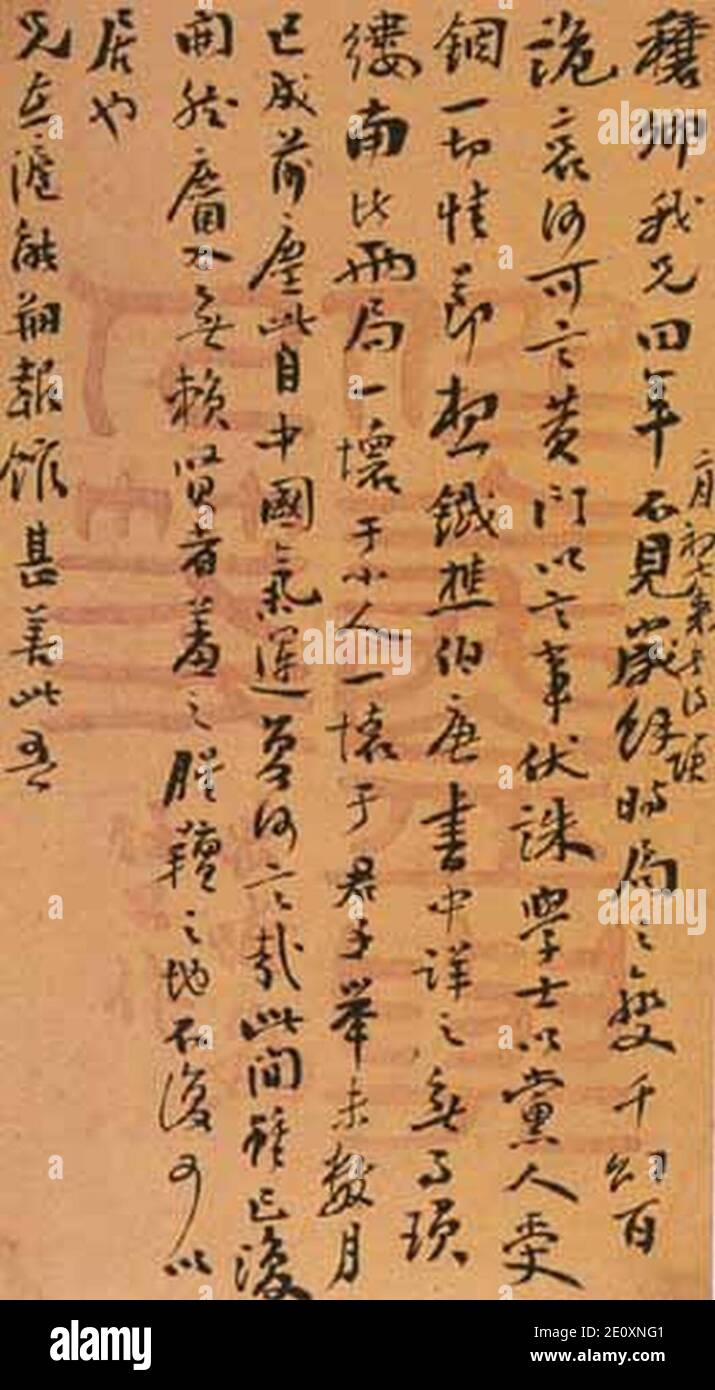 二月初七
穰卿我兄年不見歲時局之變千幻百
詭哀何可言黃門以言事伏誅學士以黨人受
錮一切情節想鐵樵伯唐書中詳之無事瑣
縷南北兩局一壞于小人一壞于君子舉未數月
已成前塵此自中國氣運何言哉此間雖已復
開然麕入無賴賢者羞之腥羶之地不復可以
居也
兄在滬能報館甚善此吾
alamy
Image ID: 2E0XNG1
www.alamy.com